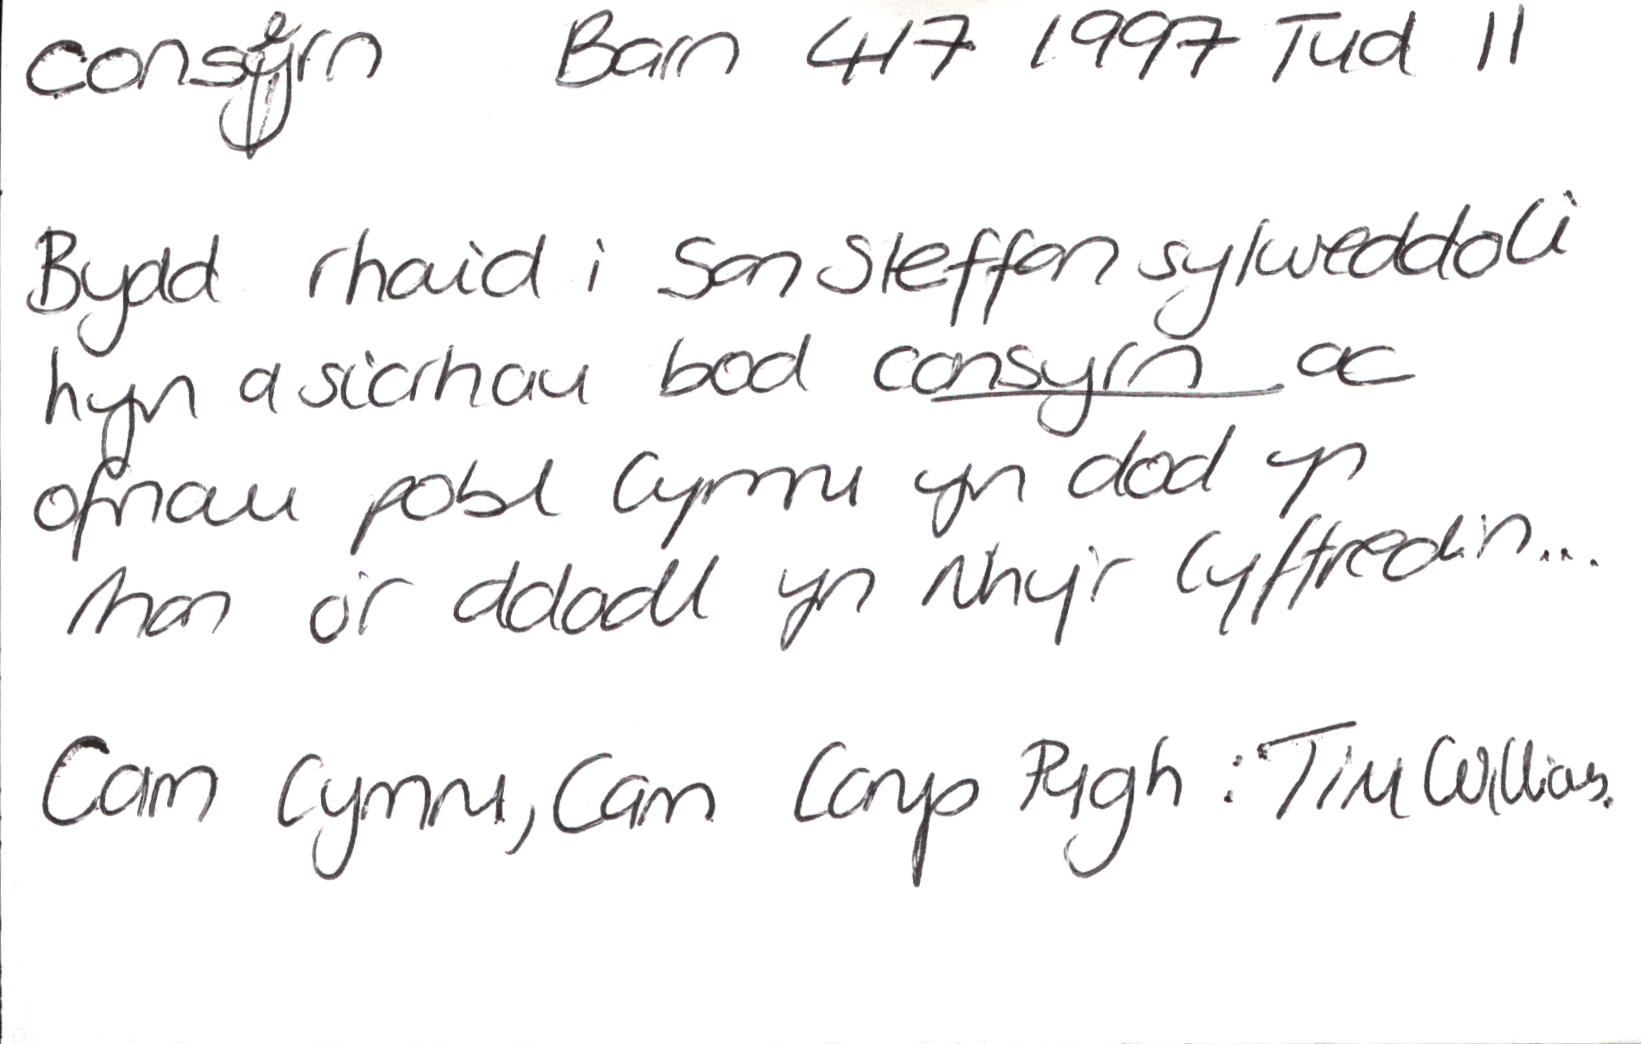 consyrn Barn 417 1997 Tud 11
Bydd rhaid i San Steffan sylweddoli
hyn a sicrhau bod consyrn ac
ofnau pobl Cymru yn dod yn
rhan o'r ddadl yn Nhy'r Cyffredin...
Cam Cymru, Cam Corup Pugh: Tim Williams.